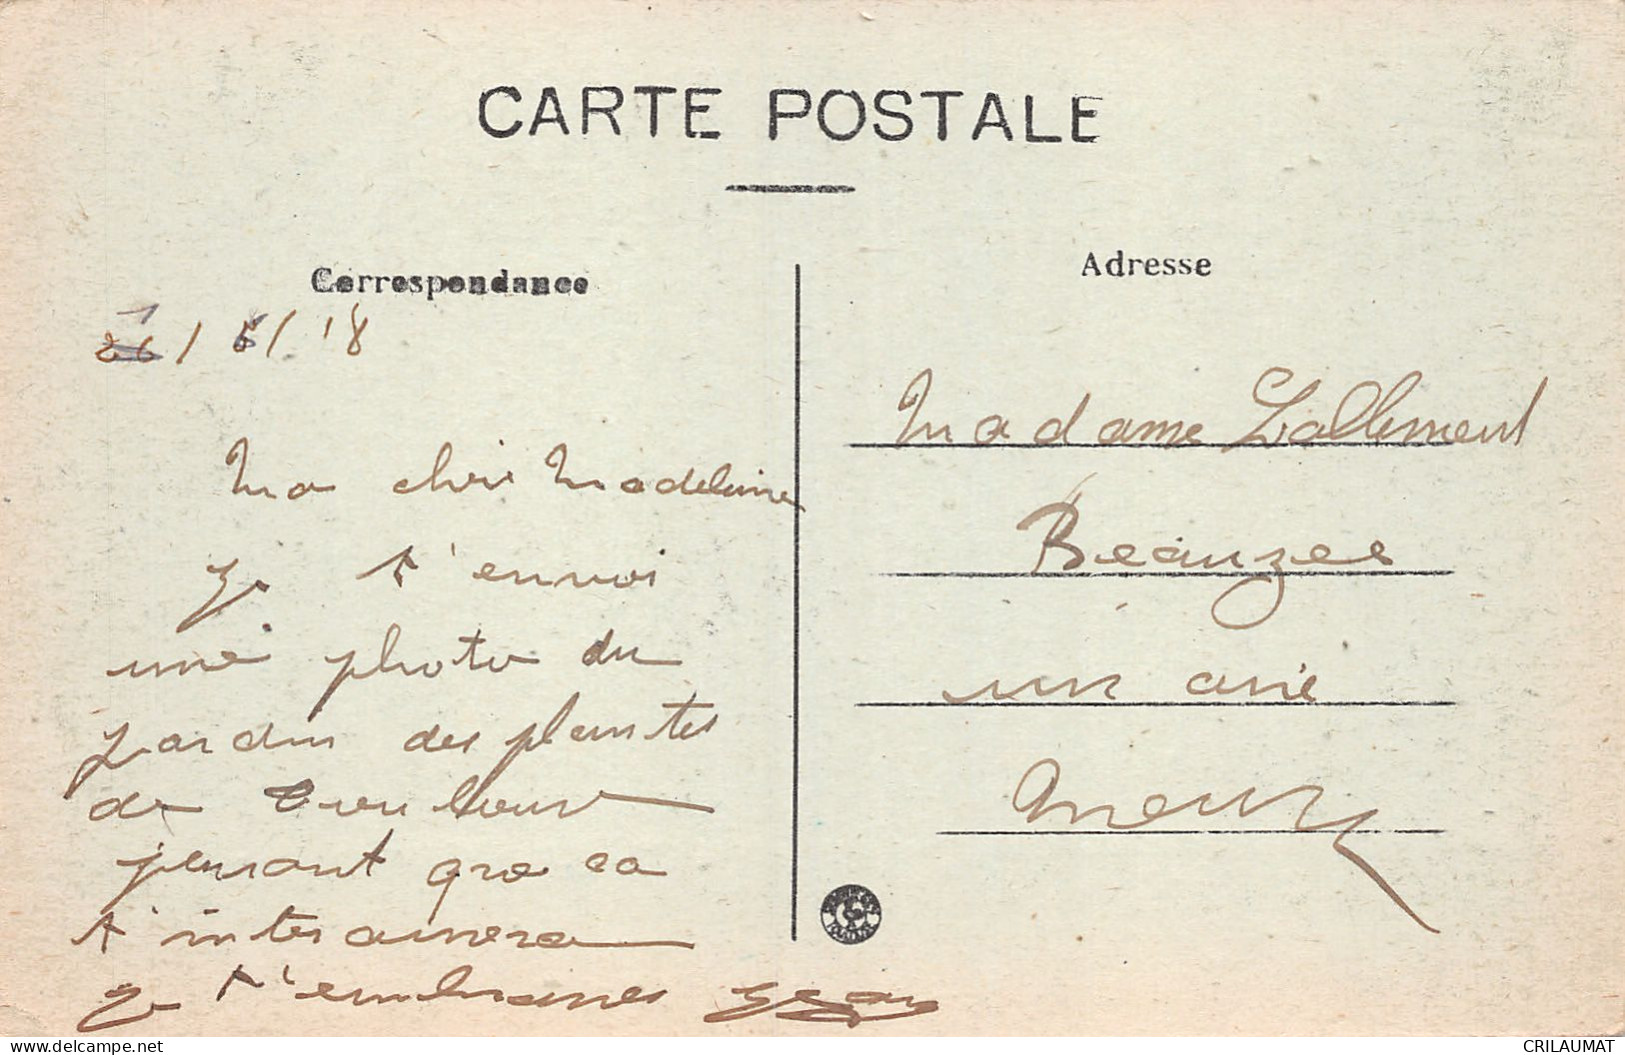 CARTE POSTALE
Correspondance
/ 18
Ma cheri Madeleine
Je t'envoi
une photo du
jardin des plantes
de Toulouse
pensant que ca
t'interainera
Je t'embrasses Jean
Adresse
Madame Lallement
Beauzee
sur aire
Meuse
delcampe.net
CRILAUMAT